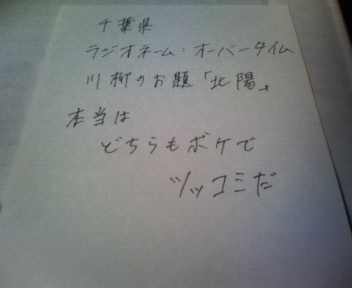 千葉県
ラジオネーム:オーバータイム
川柳のお題「北陽」
本当は
どちらもボケで
ツッコミだ